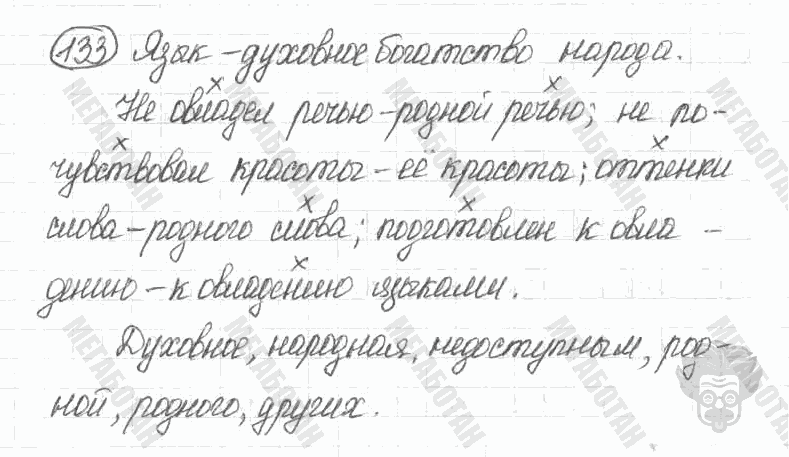 133 Язык – духовное богатство народа.
Не овладел речью – родной речью; не по-
чувствовал красоты – её красоты; оттенки
слова – родного слова; подготовлен к овла-
дению – к овладению языками.
Духовное, народная, недоступным, род-
ной, родного, других.